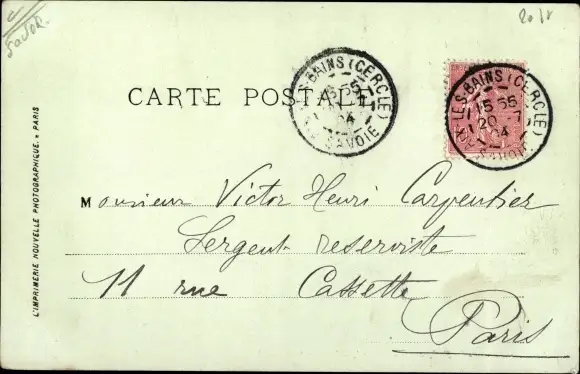 Savoie.
CARTE POSTALE
LES-BAINS (CERCLE)
15 55
20 7
04
SAVOIE
LES-BAINS (CERCLE)
15 55
20 7
04
Monsieur Victor Henri Carpentier
Sergent reserviste
11 rue Cassette
Paris
L'IMPRIMERIE NOUVELLE PHOTOGRAPHIQUE. * PARIS